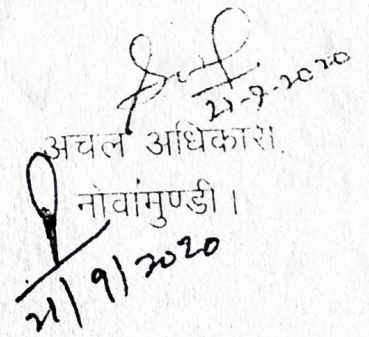 21-9-2020
अंचल अधिकारी,
नोवामुण्डी।
21/9/2020